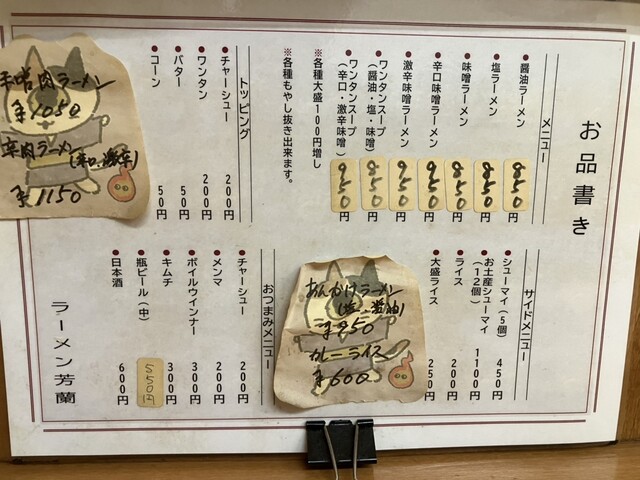 お品書き
メニュー
●醤油ラーメン 850円
●塩ラーメン 850円
●味噌ラーメン 850円
●辛口味噌ラーメン 950円
●激辛味噌ラーメン 950円
●ワンタンスープ
(醤油・塩・味噌) 850円
●ワンタンスープ
(辛口・激辛味噌) 950円
※各種大盛100円増し
※各種もやし抜き出来ます。
トッピング
●チャーシュー 200円
●ワンタン 200円
●バター 50円
●コーン 50円
肉ラーメン
¥1050
辛肉ラーメン
(辛口、激辛)
¥1150
サイドメニュー
●シューマイ(5個) 450円
●お土産シューマイ
(12個) 1100円
●ライス 200円
●大盛ライス 250円
あんかけラーメン
(塩、醤油)
¥950
カレーライス
¥600
おつまみメニュー
●チャーシュー 200円
●メンマ 200円
●ボイルウインナー 300円
●キムチ 300円
●瓶ビール(中) 550円
●日本酒 600円
ラーメン芳蘭